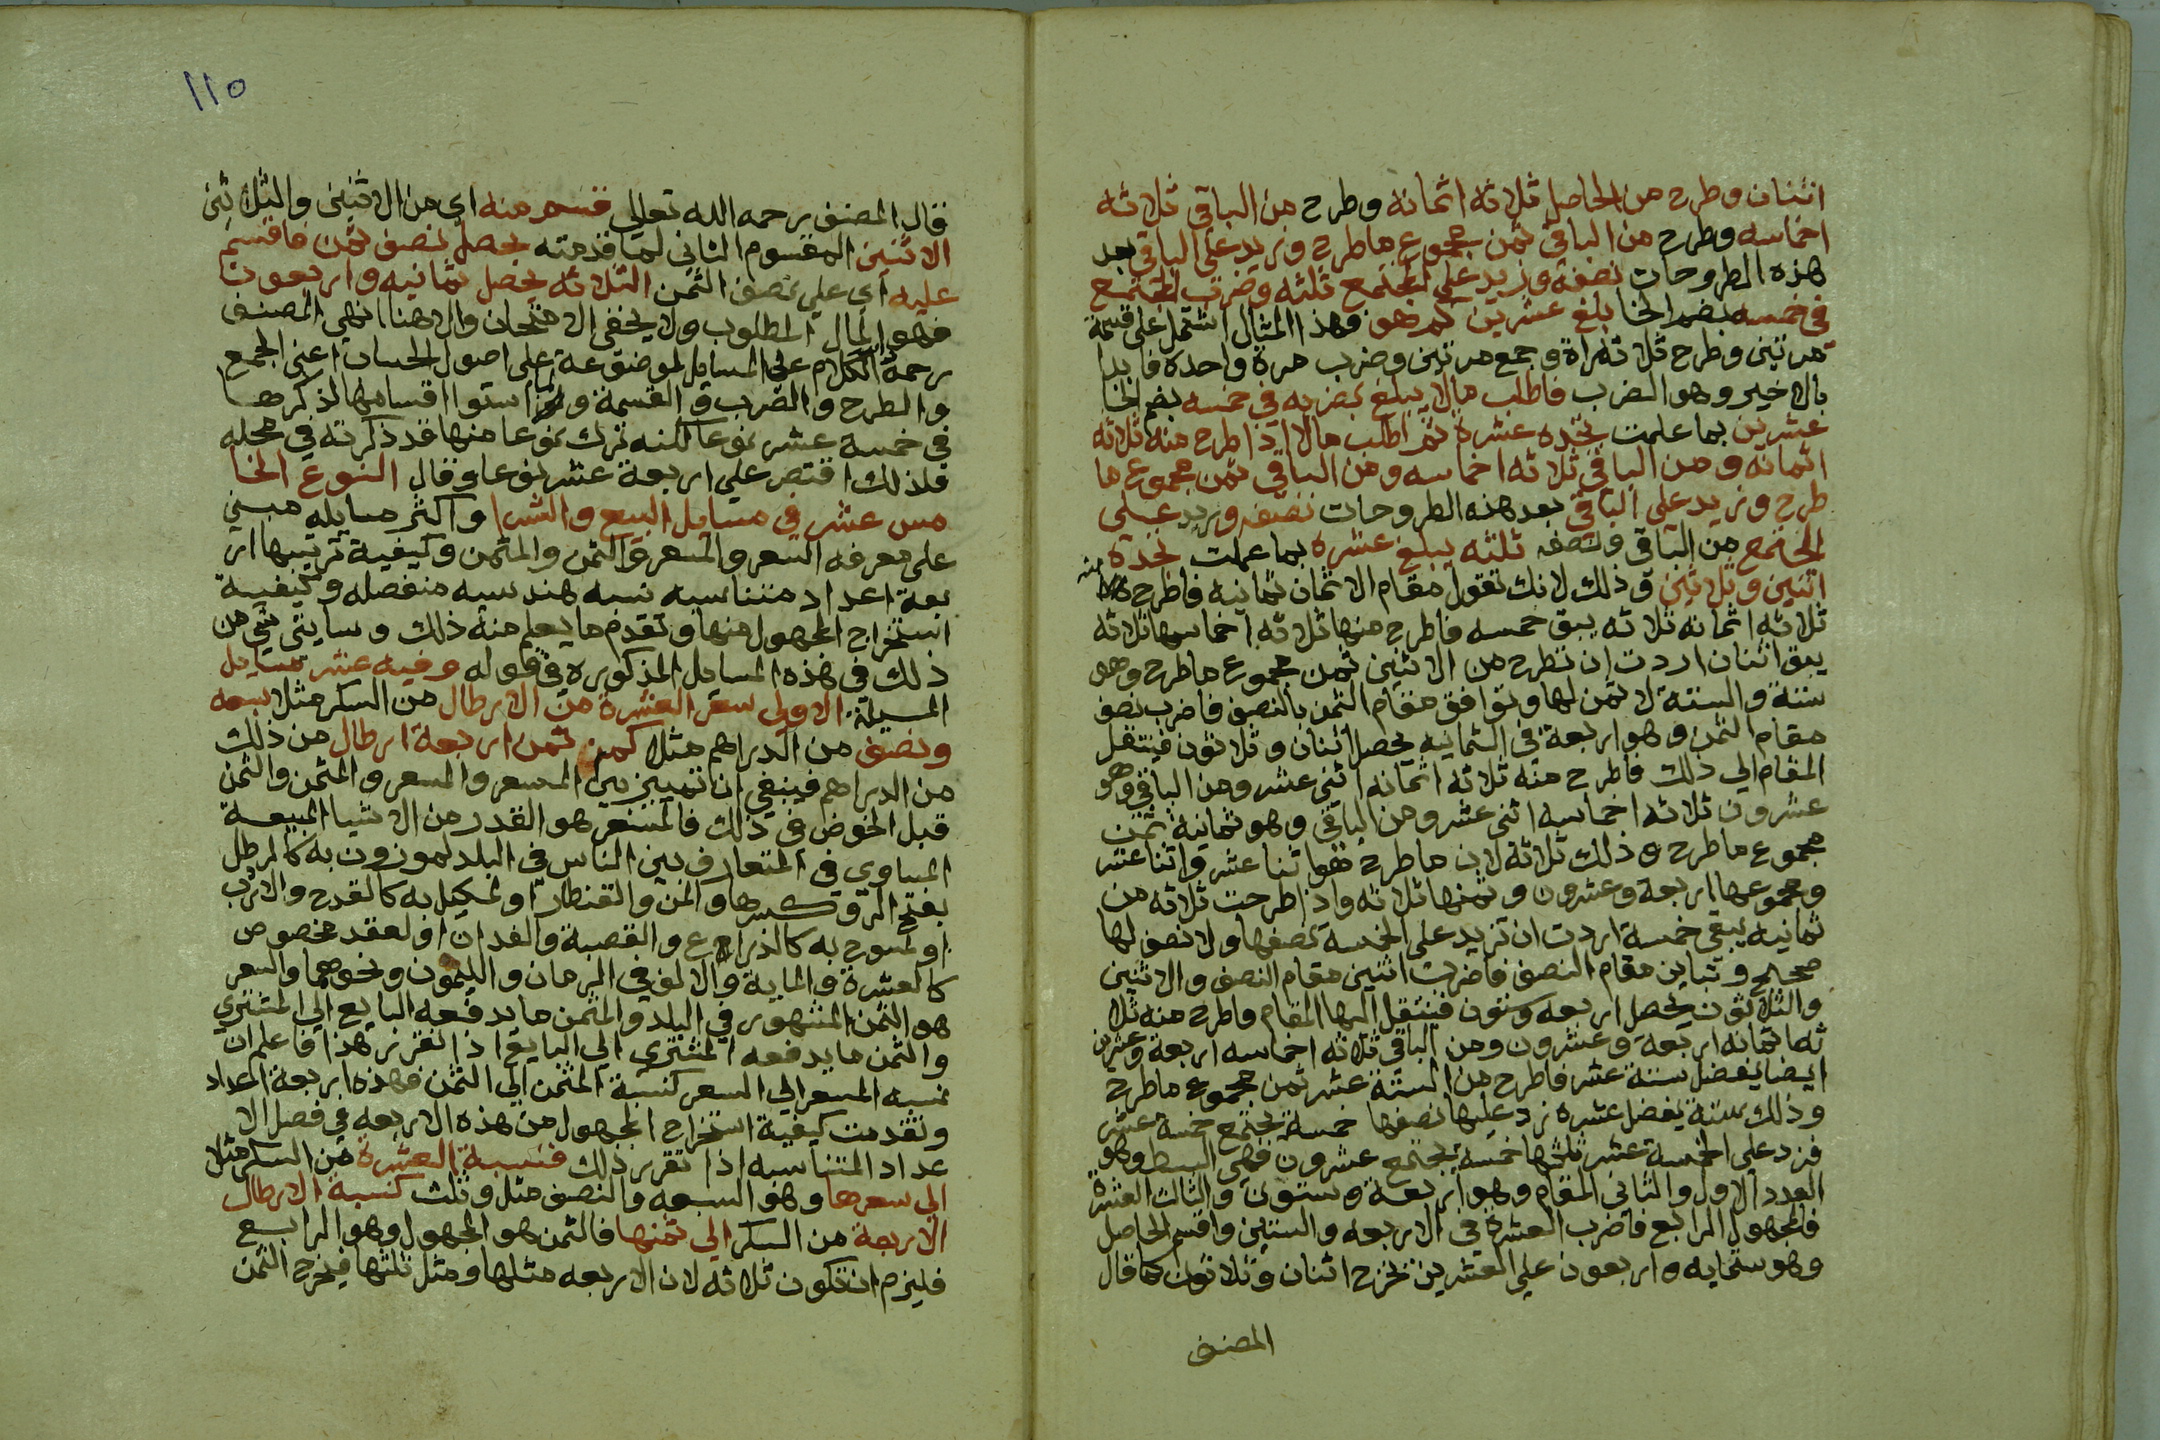 اثنان وطرح من الحاصل ثلاثة اثمانه وطرح من الباقي ثلاثه
اخماسه وطرح من الباقي ثمن مجموع ما طرح وزيد على الباقي بعد
هذه الطروحات نصفه وزيد على المجتمع ثلثه وضرب المجتمع
في خمسه بضم الخا بلغ عشرين كم هو وهذا المثال اشتمل على قسمة
مرتين وطرح ثلاث مراة وجمع مرتين وضرب مرة واحدة فابدا
بالاخير وهو الضرب فاطلب مالا يبلغ بضربه في خمسه بضم الخا
عشرين بما علمت تجده عشرة ثم اطلب مالا اذا طرح منه ثلاثه
اثمانه ومن الباقي ثلاثه اخماسه ومن الباقي ثمن مجموع ما
طرح وزيد على الباقي بعد هذه الطروحات نصفه وزيد على
المجتمع من الباقي ونصفه ثلثه يبلغ عشره بما عملت تجده
اثنين وثلاثين وذلك لانك تقول مقام الاثمان ثمانيه فاطرح منه
ثلاثه اثمانه ثلاثه يبق خمسه فاطرح منها ثلاثه اخماسها ثلاثه
يبق اثنان اردت ان تطرح من الاثنين ثمن مجموع ما طرح وهو
ستة والستة لا ثمن لها وتوافق مقام الثمن بالنصف فاضرب نصف
مقام الثمن وهو اربعة في الثمانيه يحصل اثنان وثلاثون فينتقل
المقام الي ذلك فاطرح منه ثلاثه اثمانه اثني عشر ومن الباقي وهو
عشرون ثلاثه اخماسه اثني عشر ومن الباقي وهو ثمانية ثمن
مجموع ما طرح وذلك ثلاثة لان ما طرح هو اثنا عشر واثنا عشر
ومجموعها اربعة وعشرون وثمنها ثلاثه واذا طرحت ثلاثه من
ثمانيه يبقي خمسة اردت ان تزيد على الخمسة نصفها ولا نصف لها
صحيح وتباين مقام النصف فاضرب اثنين مقام النصف والاثنين
والثلاثون يحصل اربعه وستون فينتقل اليها المقام فاطرح منه ثلا
ثه اثمانه اربعة وعشرون ومن الباقي ثلاثه اخماسه اربعة وعشرين
ايضا يفضل ستة عشر فاطرح من الستة عشر ثمن مجموع ما طرح
وذلك ستة يفضل عشره زد عليها نصفها خمسة يجتمع خمسة عشر
فزد على الخمسة عشر ثلثها خمسة يجتمع عشرون فهي البسط وهو
العدد الاول والثاني المقام وهو اربعة وستون والثالث العشرة
فالمجهول الرابع فاضرب العشرة في الاربعه والستين واقسم الحاصل
وهو ستمايه واربعون على العشرين يخرج اثنان وثلاثون كما قال
المصنف
١١٥
قال المصنف رحمه الله تعالي قسم منه اي من الاثنين والثلاثين
الاثنين المقسوم الثاني لما قدمته يحصل نصف ثمن فاقسم
عليه اي علي نصف الثمن الثلاثه يحصل ثمانيه واربعون
فهو المال المطلوب ولا يخفي الامتحان والا هنا انهي المصنف
رحمة الكلام على المسايل الموضوعة على اصول الحساب اعني الجمع
والطرح والضرب والقسمة ولما استوا اقسامها لذكرها
في خمسة عشر نوعا لكنه ترك نوعا منها قد ذكرته في محله
فلذلك اقتصر علي اربعة عشر نوعا وقال النوع الخا
مس عشر في مسايل البيع والشرا واكثر مسايله مبني
على معرفه السعر والمسعر والثمن والمثمن وكيفية ترتيبها ار
بعة اعداد متناسبه نسبه هندسيه منفصله وكيفية
استخراج المجهول منها وتقدم ما يعلم منه ذلك وسايتي شي من
ذلك في هذه المسايل المذكوره في قوله وفيه عشر مسايل
المسيلة الاولي سعر العشرة من الارطال من السكر مثلا سبعه
ونصف من الدراهم مثلا كم ثمن اربعة ارطال من ذلك
من الدراهم فينبغي ان تمييز بين المسعر والسعر والمثمن والثمن
قبل الخوض في ذلك فالمسعر هو القدر من الاشيا المبيعة
المساوي في المتعارف بين الناس في البلد لموزون به كالرطل
بفتح الرا وكسرها والمن والقنطار او لمكيل به كالقدح والاردب
او لممسوح به كالذراع والقصبة والفدان او لعقد مخصوص
كالعشرة والماية والالف في الرمان والليمون ونحوهما والسعر
هو الثمن المشهور في البلد والمثمن ما يدفعه البايع الي المشتري
والثمن ما يدفعه المشتري الي البايع اذا تقرر هذا فاعلم ان
نسبه المسعر الي السعر كنسبة المثمن الي الثمن فهذه اربعة اعداد
وتقدمت كيفية استخراج المجهول من هذه الاربعه في فصل الا
عداد المتناسبه اذا تقرر ذلك فنسبة العشرة من السكر مثلا
الي سعرها وهو السبعه والنصف مثل وثلث كنسبة الارطال
الاربعة من السكر الي ثمنها فالثمن هو المجهول وهو الرابع
فليزم ان تكون ثلاثه لان الاربعه مثلها ومثل ثلثها فيخرج الثمن